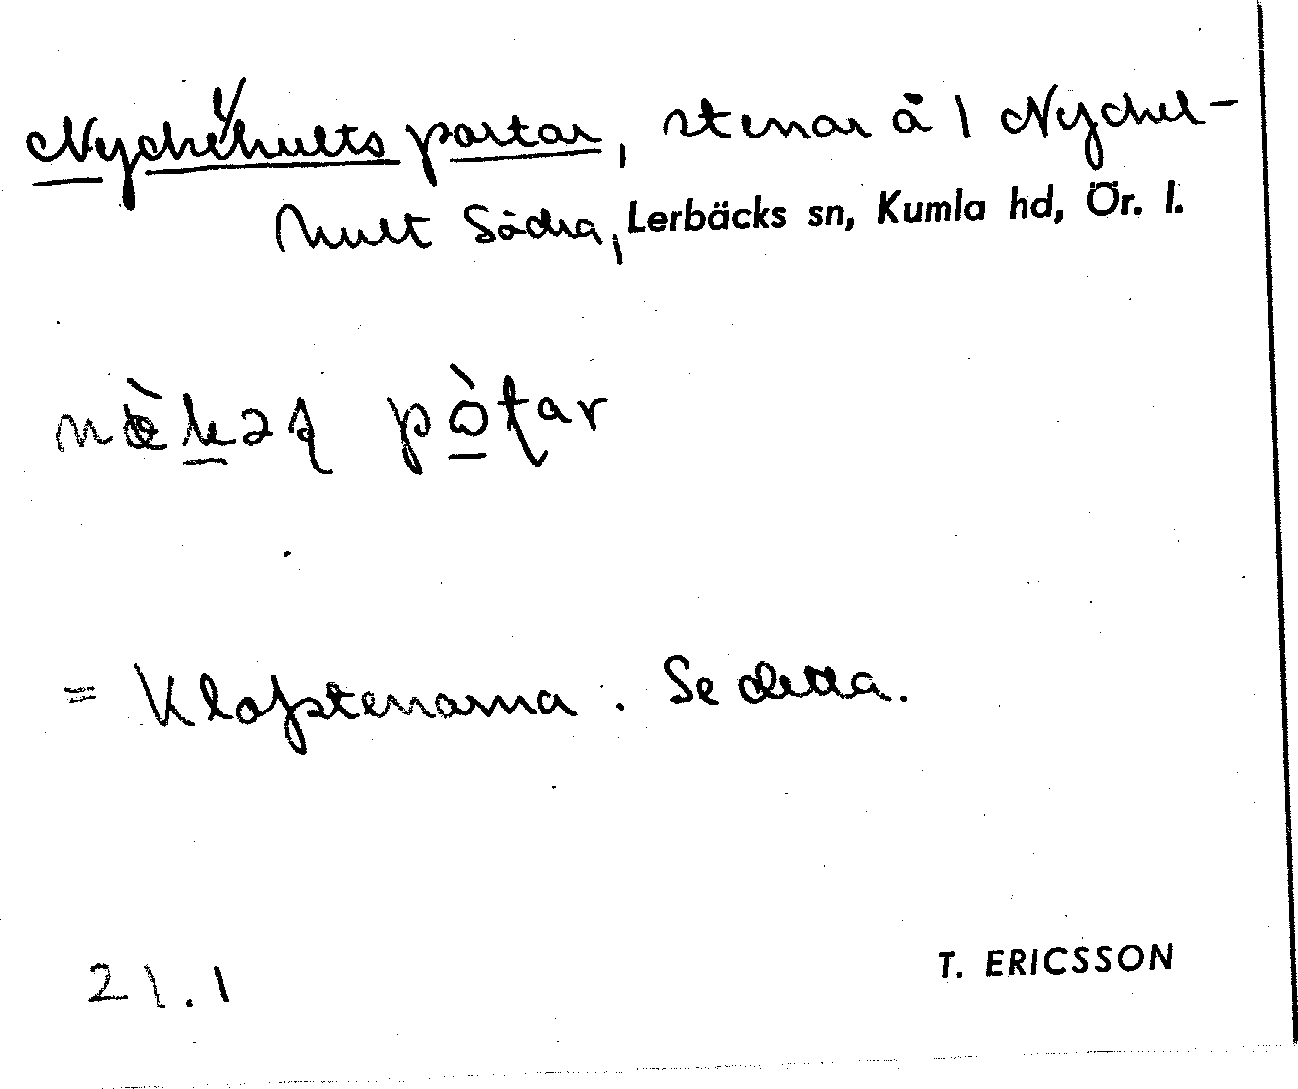 Nyckelhults portar, stenar å 1 Nyckel-
hult Södra, Lerbäcks sn, Kumla hd, Ör. l.
= Klofstenarna. Se detta.
21.1
T. ERICSSON